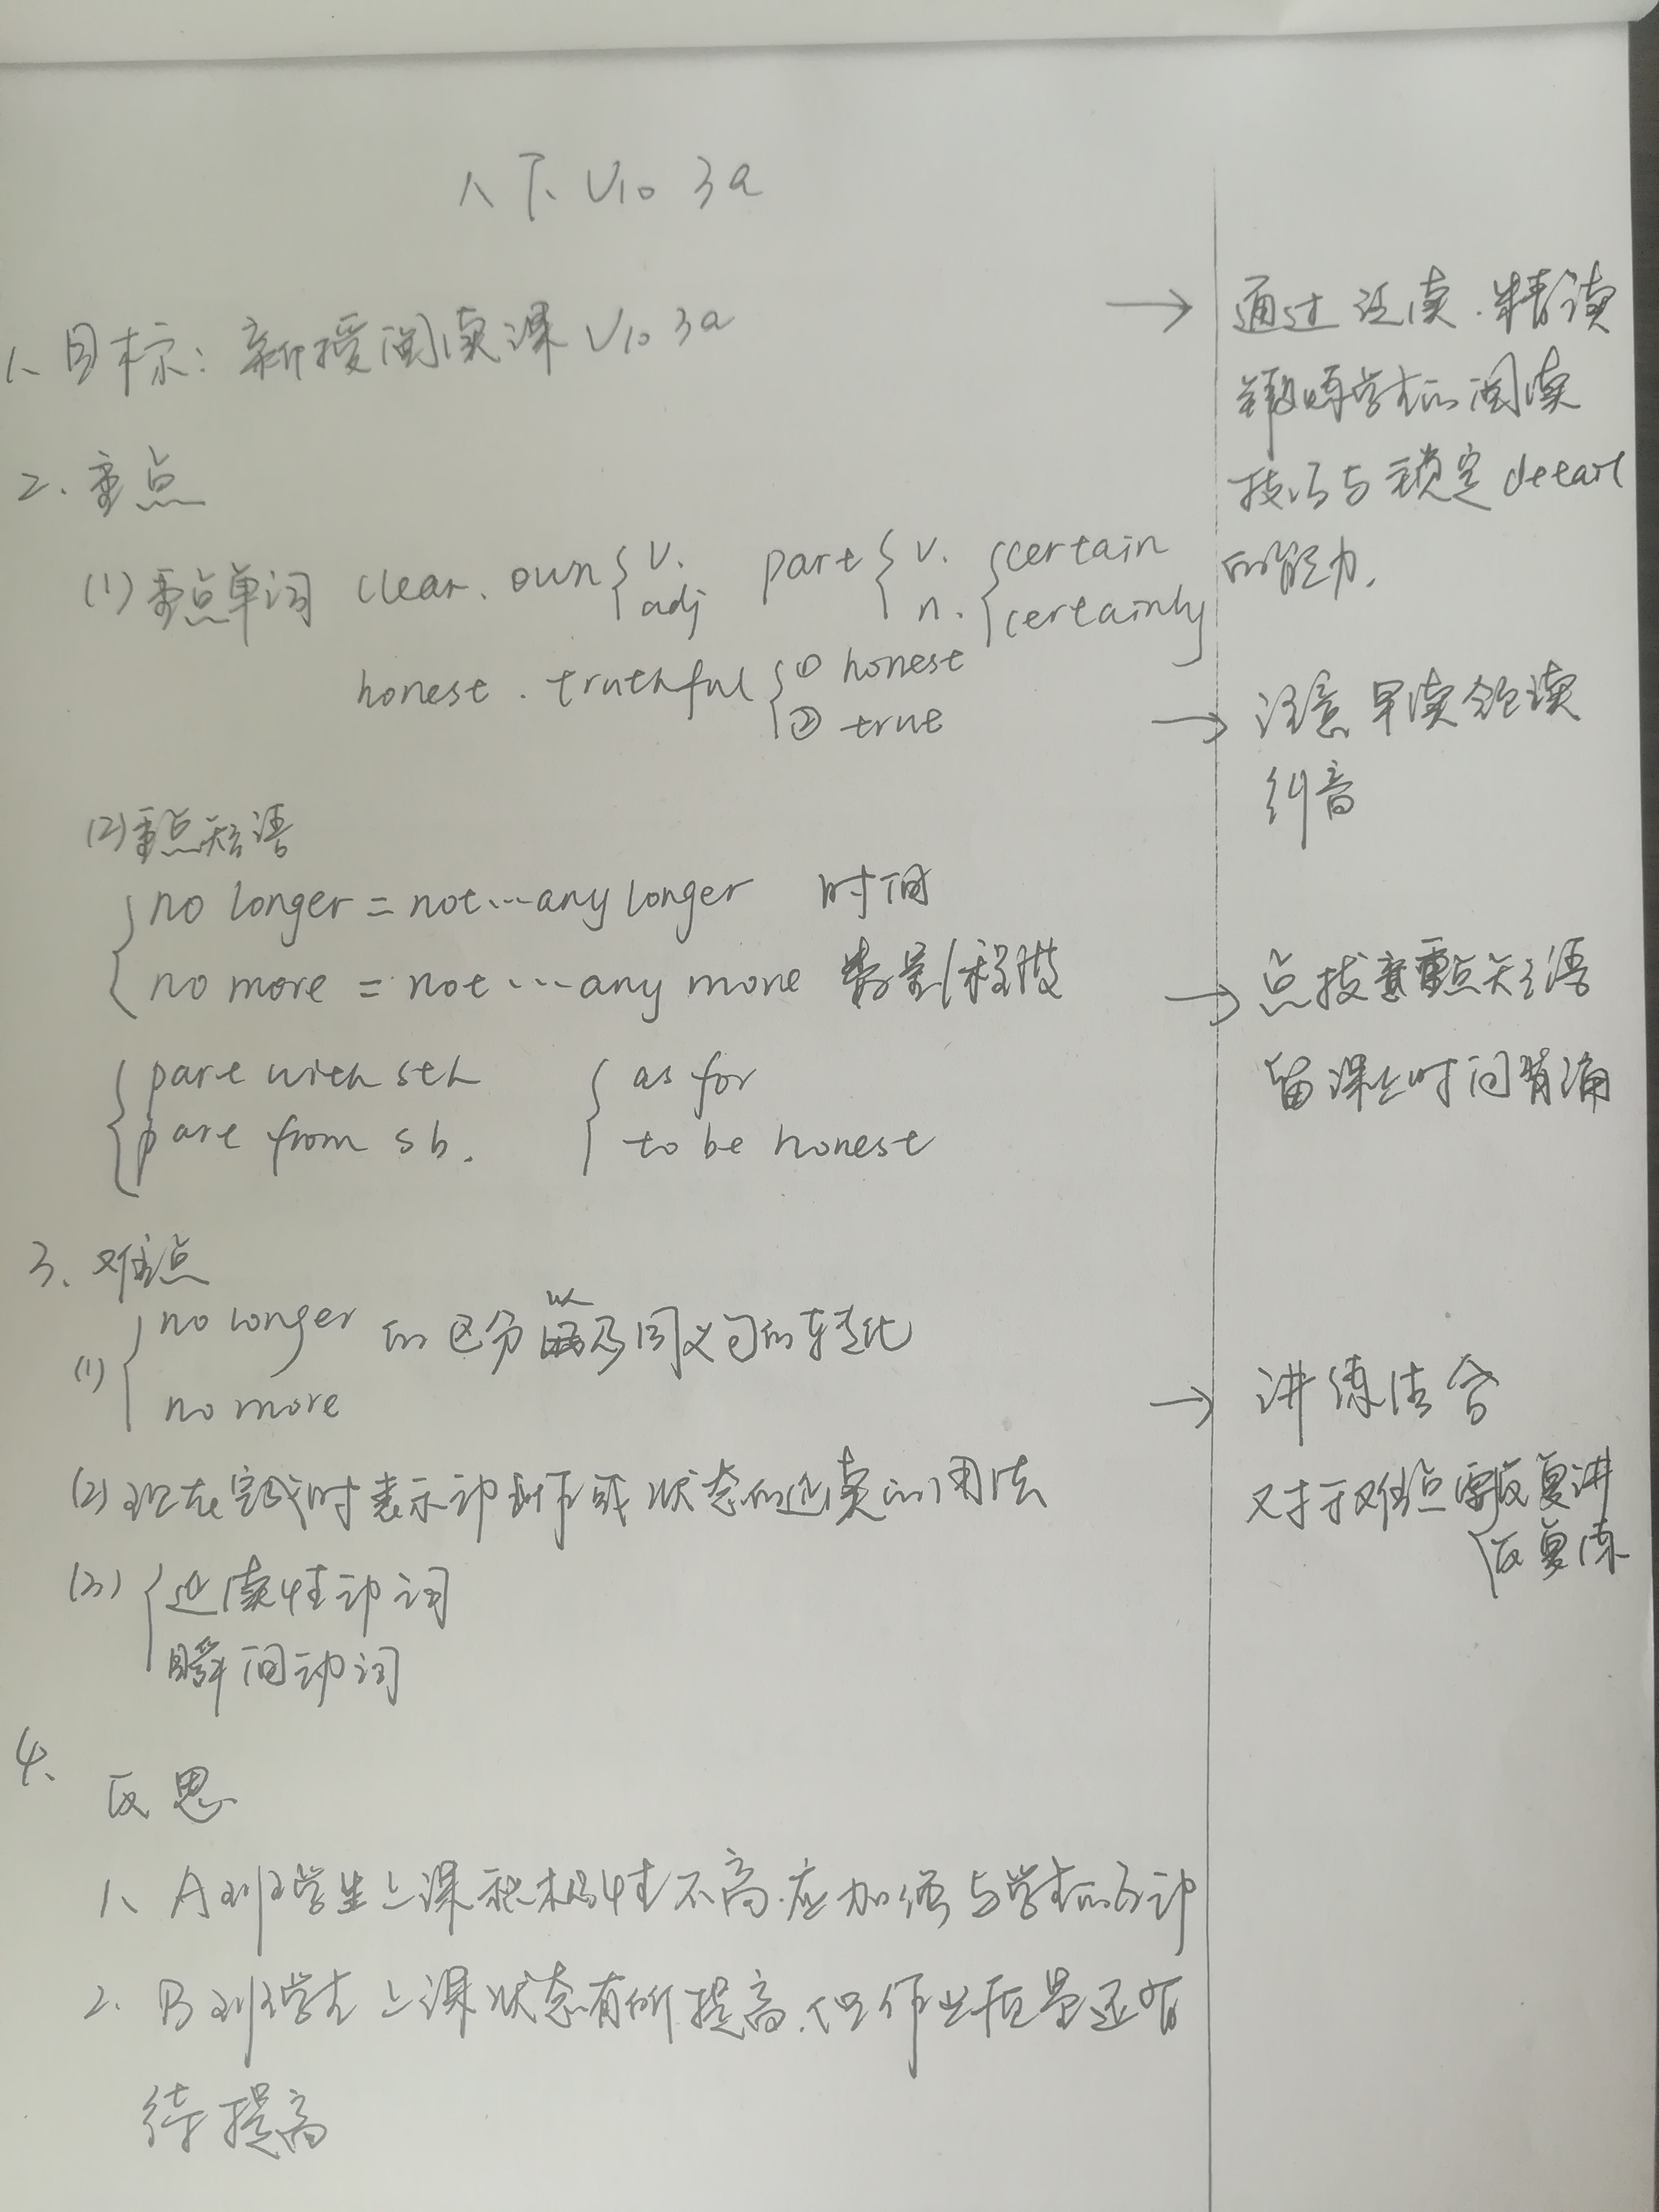 八下 U10 3a
1、目标：新授阅读课 U10 3a
→ 通过泛读、精读
锻炼学生的阅读
技巧与锁定 detail
的能力.
2. 重点
(1) 重点单词 clear. own { v. adj part { v. n. { certain certainly
honest. truthful { ① honest ② true
→ 注意早读领读
纠音
(2) 重点短语
{ no longer = not…any longer 时间
no more = not…any more 数量/程度
→ 点拨重点短语
留课上时间背诵
{ part with sth { as for
part from sb. to be honest
3、难点
(1) { no longer no more 的区分以及同义句的转化
→ 讲练结合
对于难点要反复讲
反复练
(2) 现在完成时表示动作或状态的延续的用法
(3) { 延续性动词
瞬间动词
4、
反思
1、A班学生上课积极性不高.应加强与学生的互动
2、B班学生上课状态有所提高.但作业质量还有
待提高